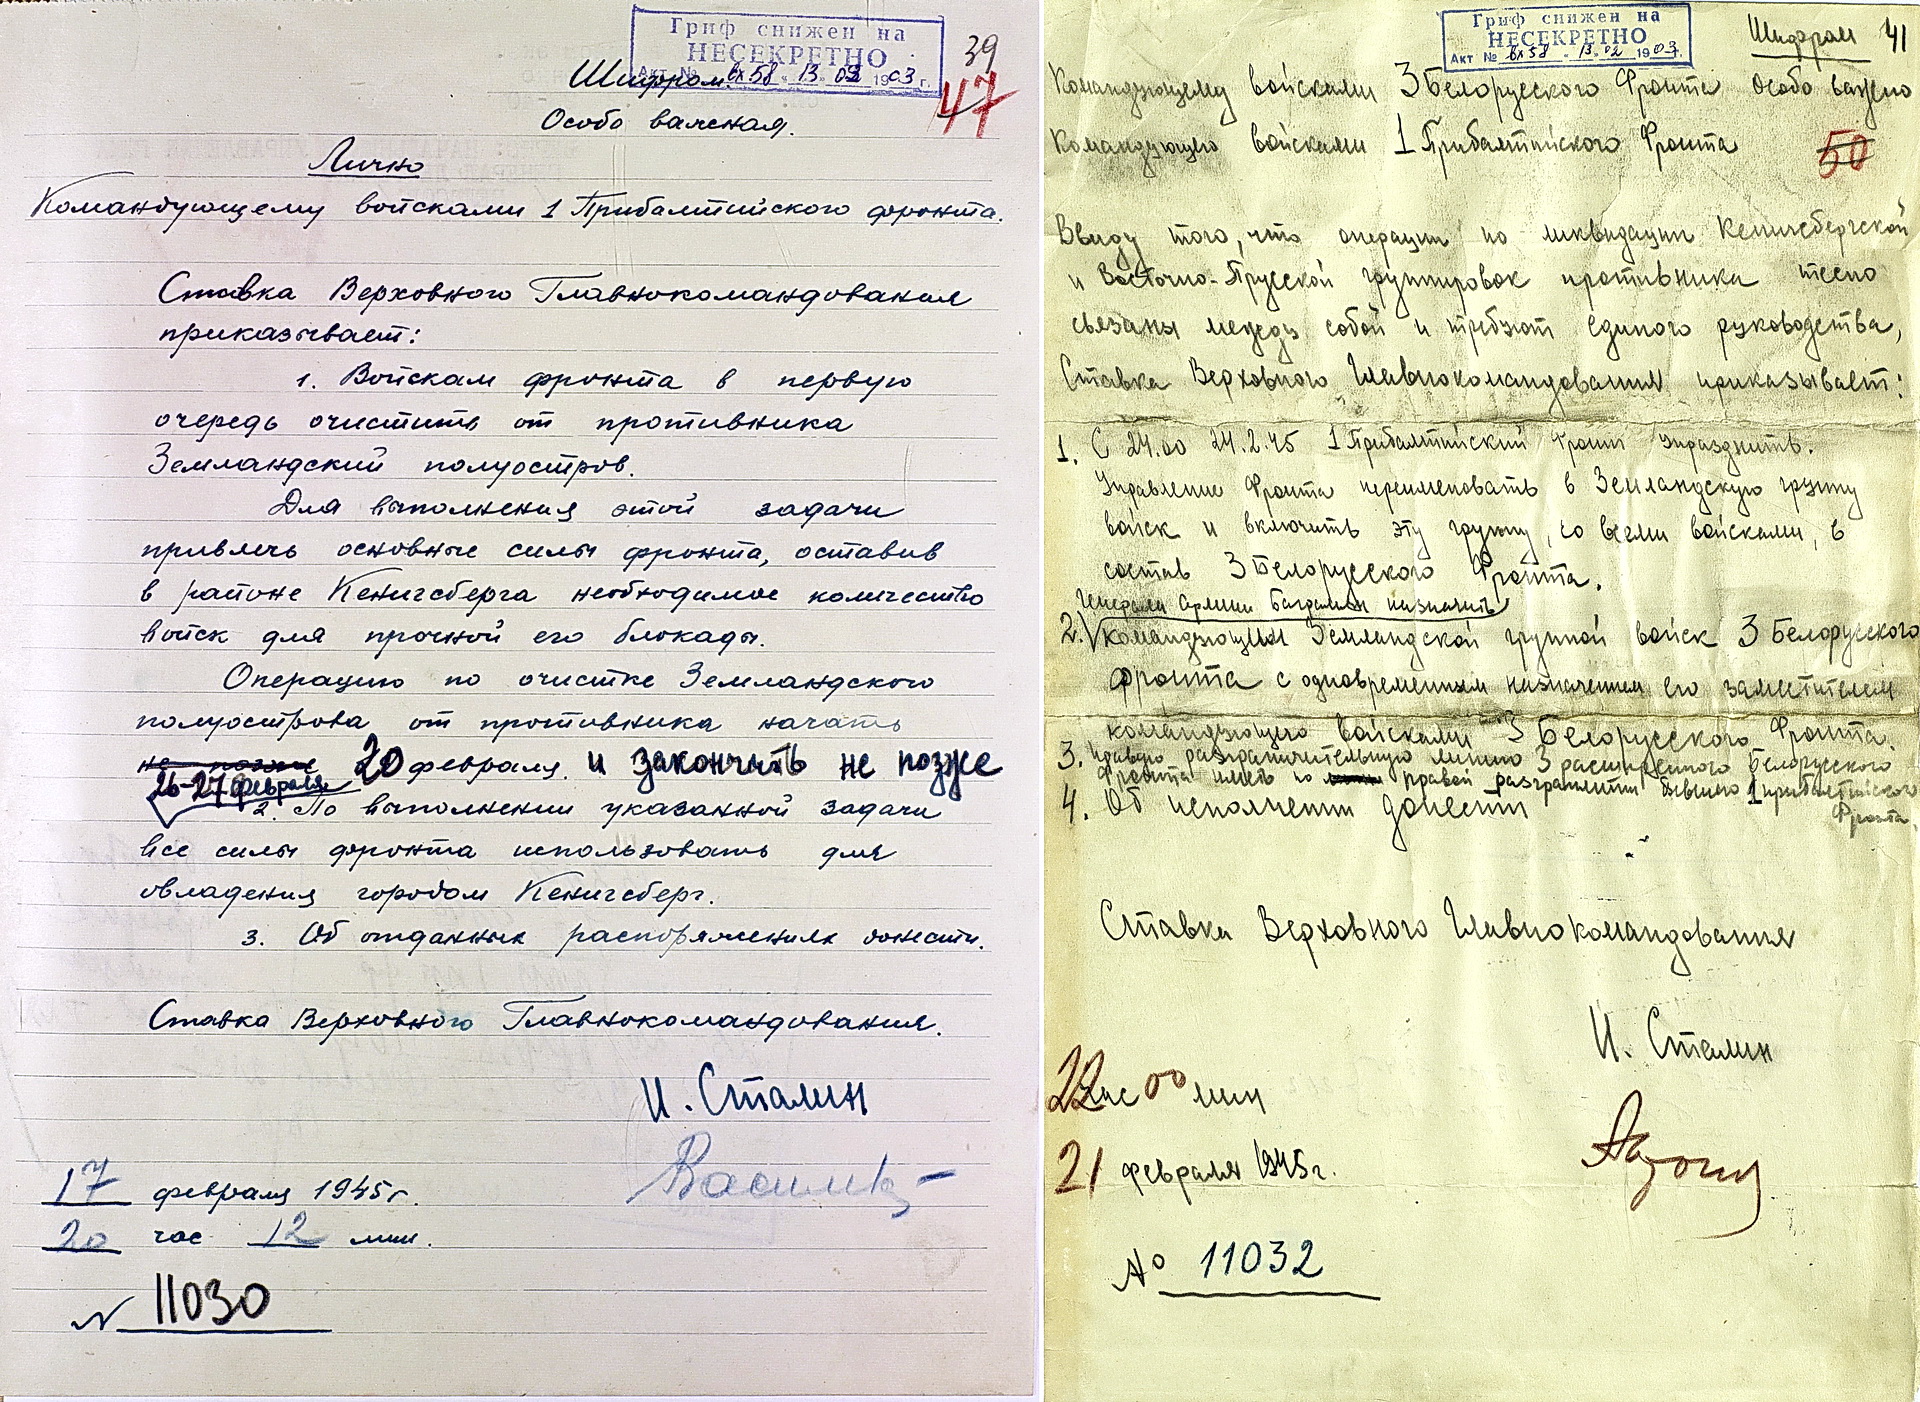 Гриф снижен на
НЕСЕКРЕТНО
Акт № вх58 " 13 " 02 1903 г.
39
Шифром.
47
Особо важная.
Лично
Командующему войсками 1 Прибалтийского фронта.
Ставка Верховного Главнокомандования
приказывает:
1. Войскам фронта в первую
очередь очистить от противника
Земландский полуостров.
Для выполнения этой задачи
привлечь основные силы фронта, оставив
в районе Кенигсберга необходимое количество
войск для прочной его блокады.
Операцию по очистке Земландского
полуострова от противника начать
не позже 20 февраля. и закончить не позже
26-27 февраля
2. По выполнении указанной задачи
все силы фронта использовать для
овладения городом Кенигсберг.
3. Об отданных распоряжениях донести.
Ставка Верховного Главнокомандования.
И. Сталин
17 февраля 1945 г.
20 час 12 мин.
N 11030
Гриф снижен на
НЕСЕКРЕТНО
Акт № вх58 " 13 " 02 1903 г.
Шифром 41
Командующему войсками 3 Белорусского Фронта Особо важно
Командующего войсками 1 Прибалтийского Фронта
50
Ввиду того, что операции по ликвидации Кенигсбергской
и Восточно-Прусской группировок противника тесно
связаны между собой и требуют единого руководства,
Ставка Верховного Главнокомандования приказывает:
1. С 24.00 24.2.45 1 Прибалтийский Фронт упразднить.
Управление Фронта переименовать в Земландскую группу
войск и включить эту группу, со всеми войсками, в
состав 3 Белорусского Фронта.
Генерала Армии Баграмян назначить
2. командующим Земландской группой войск 3 Белорусского
Фронта с одновременным назначением его заместителем
командующего войсками 3 Белорусского Фронта.
3. Правую разграничительную линию 3 расширенного Белорусского
Фронта иметь по правой разгранлинии бывшего 1 прибалтийского
Фронта.
4. Об исполнении донести
Ставка Верховного Главнокомандования
И. Сталин
22 час 00 мин
21 февраля 1945 г.
№ 11032